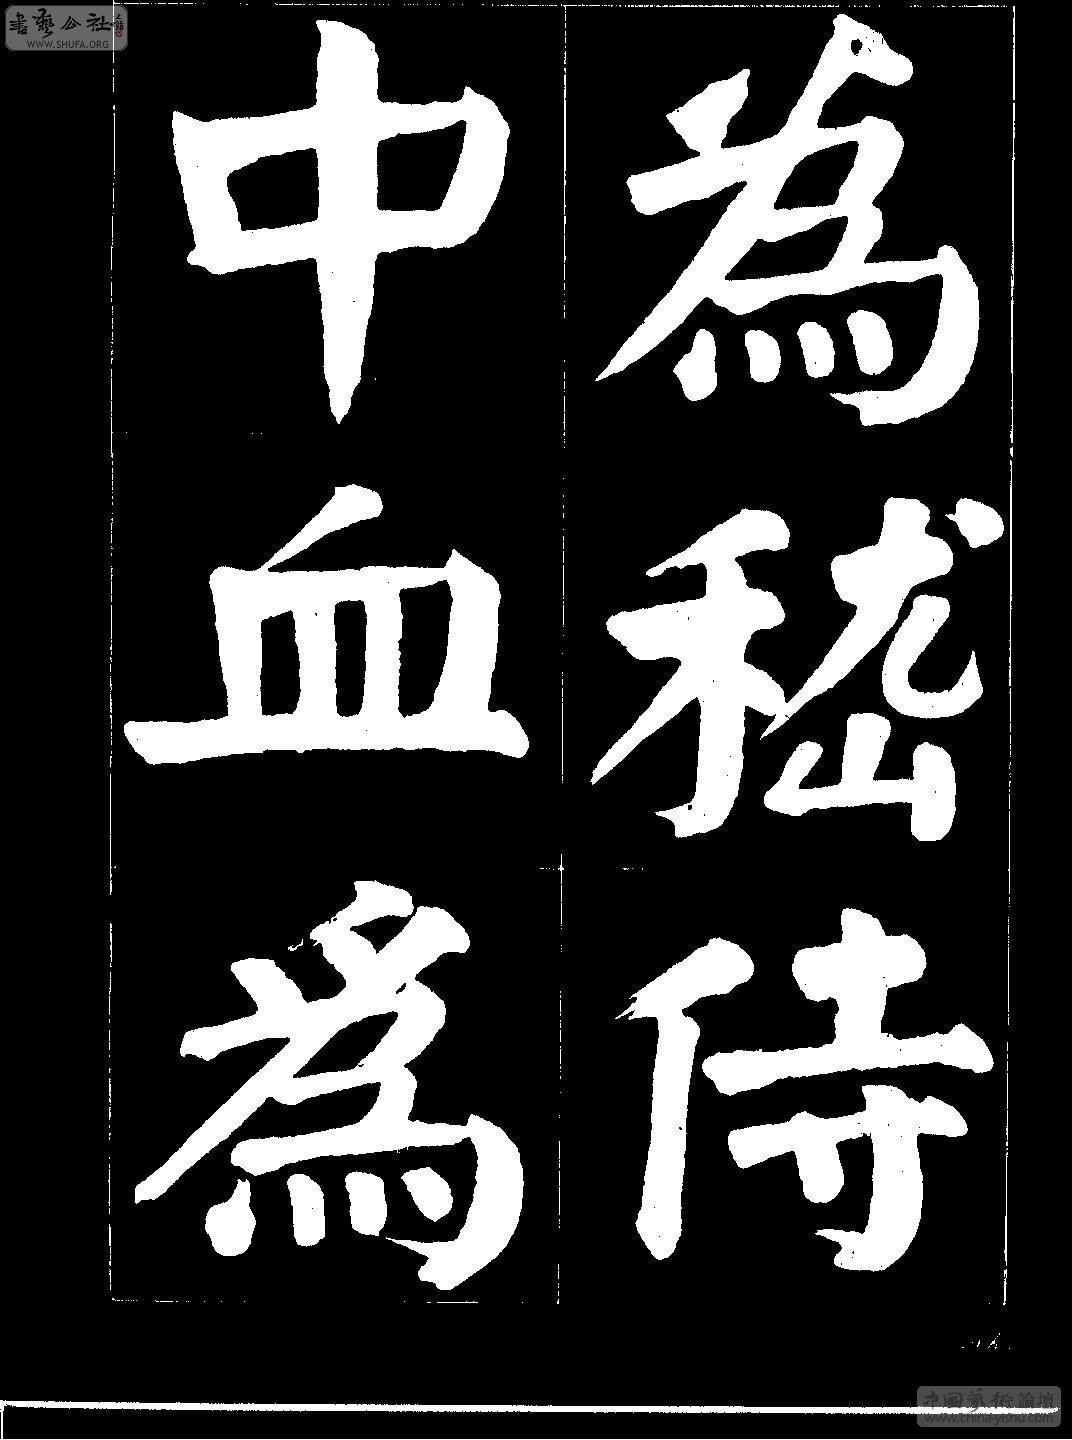 為嵇侍
中血為
書藝公社
WWW.SHUFA.ORG
中国艺术論壇
www.china-yishu.com